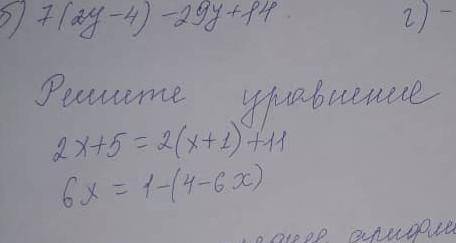 б) 7(2y-4)-29y+14 г) -
Решите уравнение
2x+5=2(x+1)+11
6x=1-(4-6x)